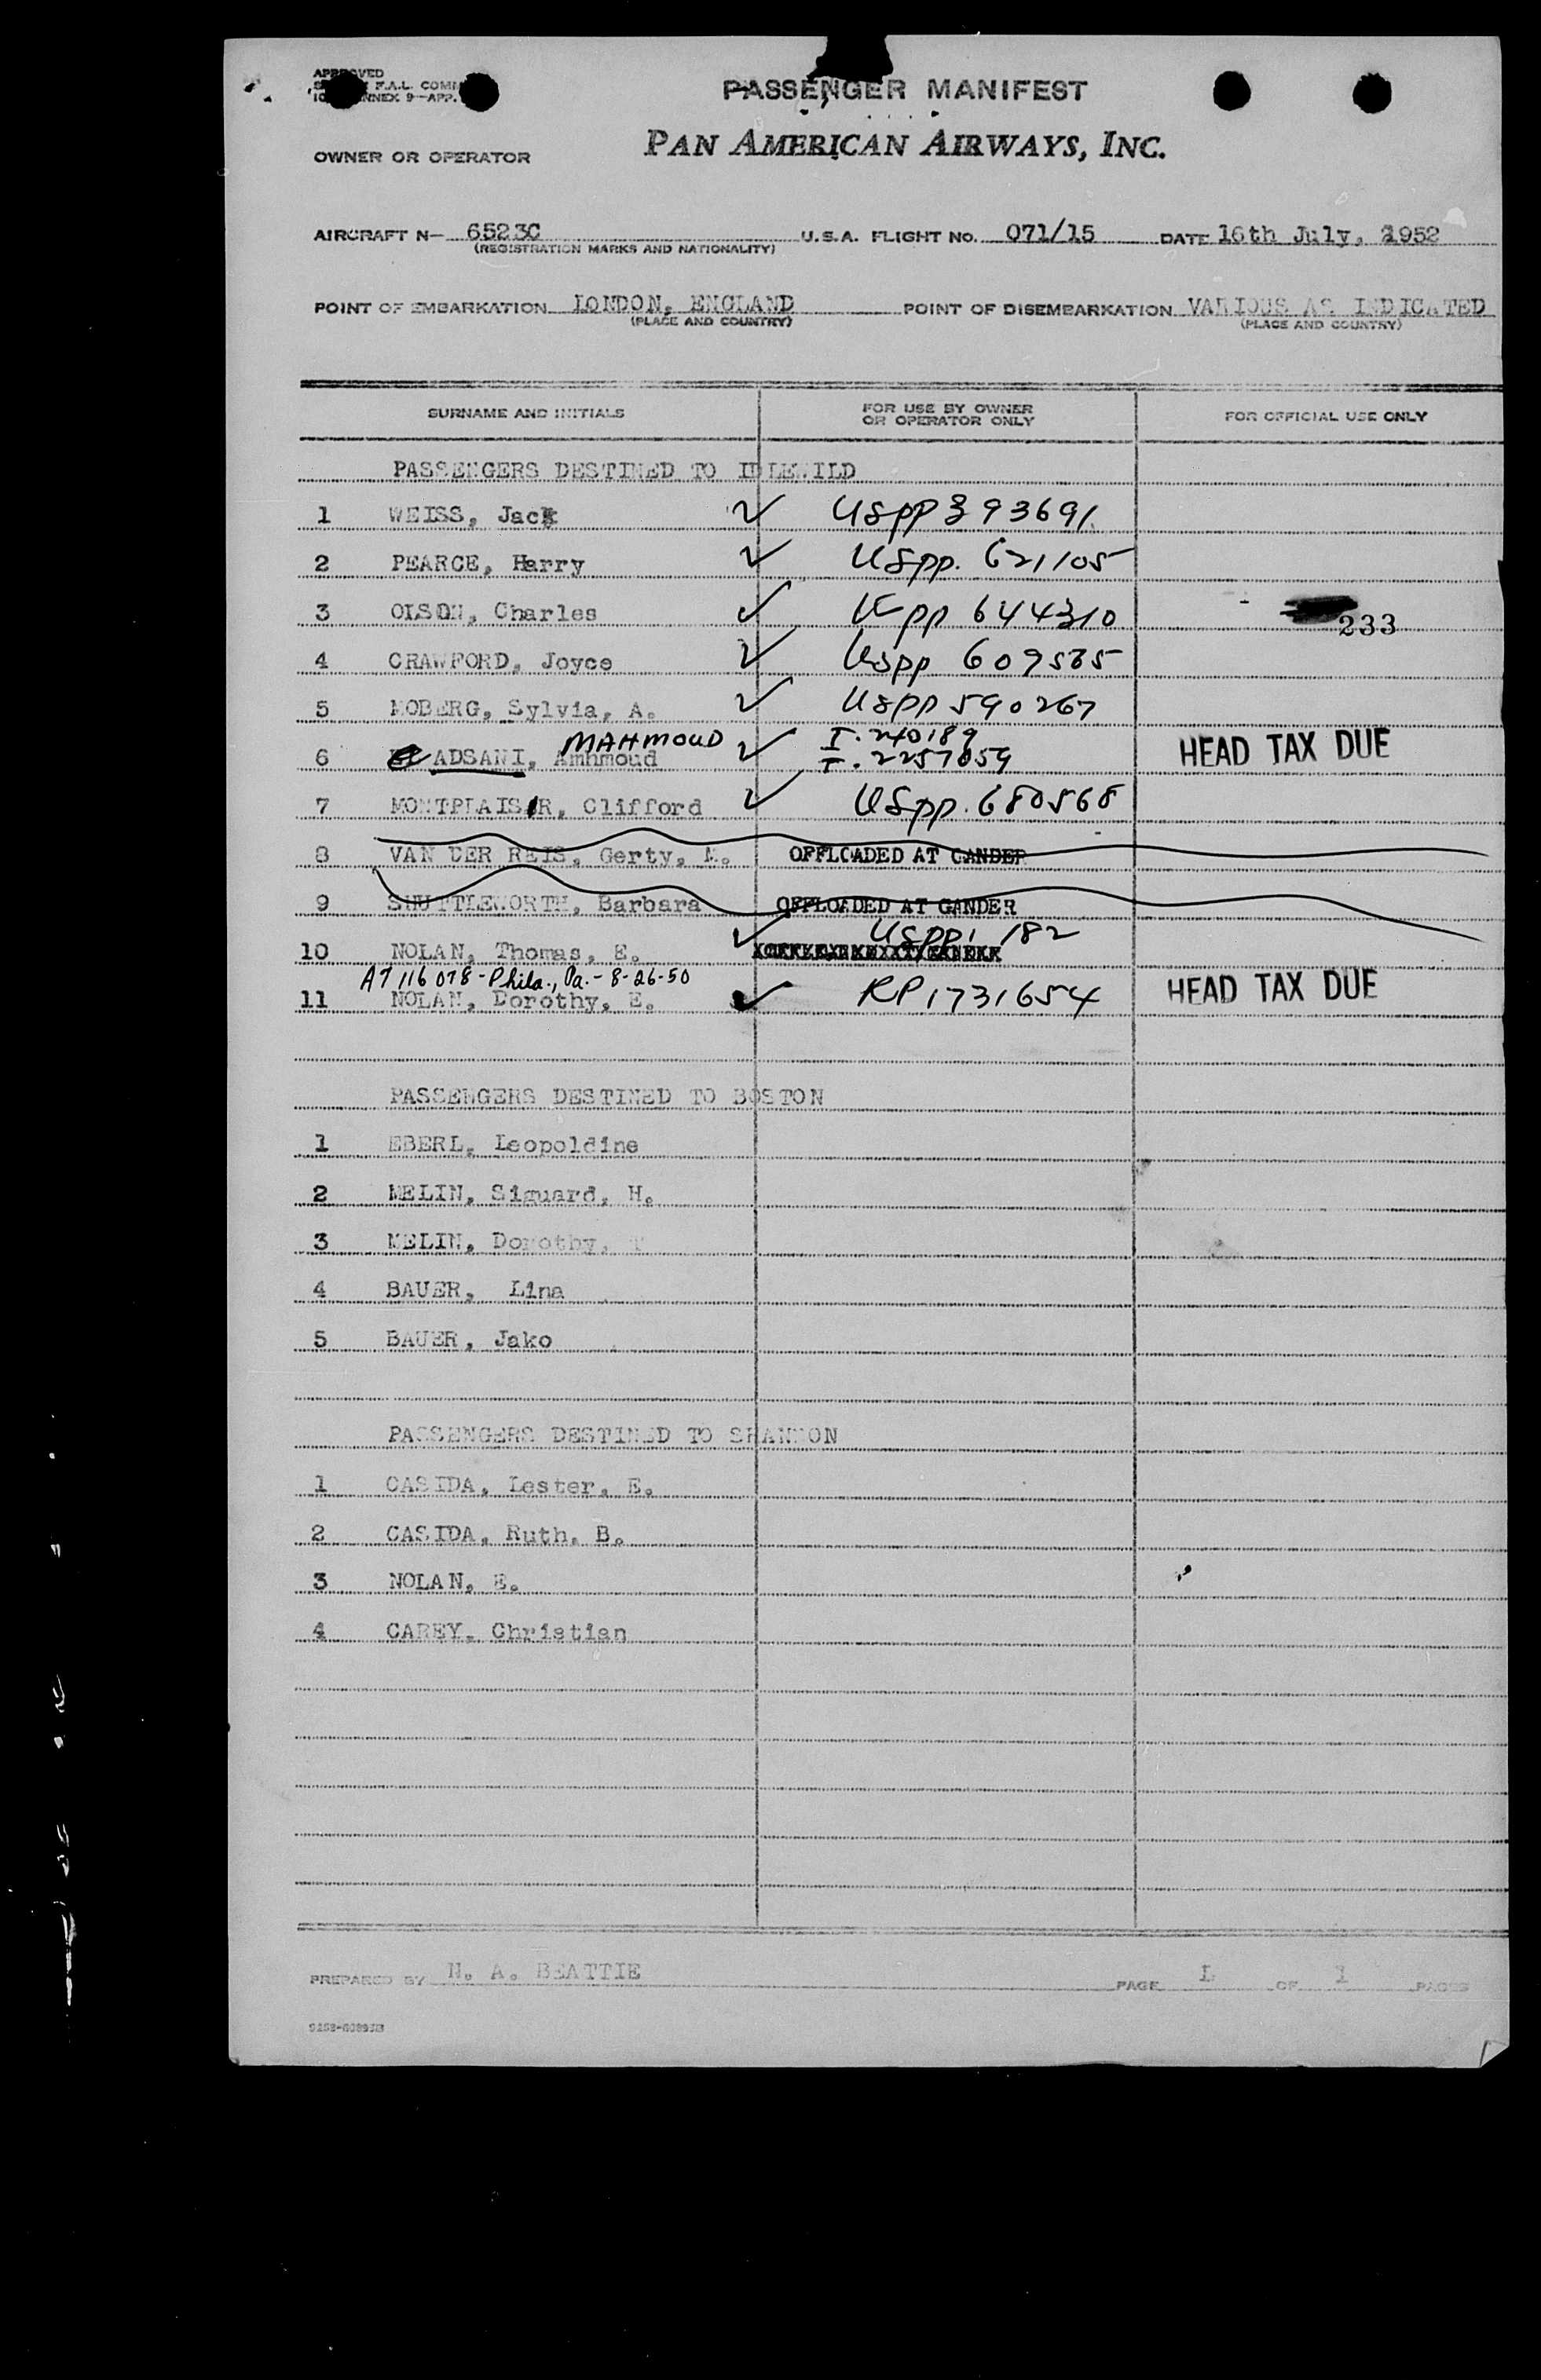 APPROVED
F.A.L. COMM
ANNEX 9—APP.
PASSENGER MANIFEST
OWNER OR OPERATOR PAN AMERICAN AIRWAYS, INC.
AIRCRAFT N— 6523C U.S.A. FLIGHT NO. 071/15 DATE 16th July, 1952
(REGISTRATION MARKS AND NATIONALITY)
POINT OF EMBARKATION LONDON, ENGLAND POINT OF DISEMBARKATION VARIOUS AS INDICATED
(PLACE AND COUNTRY) (PLACE AND COUNTRY)
SURNAME AND INITIALS FOR USE BY OWNER OR OPERATOR ONLY FOR OFFICIAL USE ONLY
PASSENGERS DESTINED TO IDLEWILD
1 WEISS, Jack ✓ USpp 393691
2 PEARCE, Harry ✓ USpp. 621105
3 OLSON, Charles ✓ pp 644310 233
4 CRAWFORD, Joyce ✓ USpp 609585
5 MOBERG, Sylvia, A. ✓ USpp 590267
MAHMOUD I. 240189
6 ADSANI, Amhmoud ✓ I. 2257059 HEAD TAX DUE
7 MONTPLAISIR, Clifford ✓ USpp. 680568
8 VAN DER REIS, Gerty, M. OFFLOADED AT GANDER
9 SHUTTLEWORTH, Barbara OFFLOADED AT GANDER
10 NOLAN, Thomas, E. ✓ USpp 182
A7 116 078 - Phila., Pa. - 8-26-50
11 NOLAN, Dorothy, E. ✓ RP 1731654 HEAD TAX DUE
PASSENGERS DESTINED TO BOSTON
1 EBERL, Leopoldine
2 MELIN, Siguard, H.
3 MELIN, Dorothy, T
4 BAUER, Lina
5 BAUER, Jako
PASSENGERS DESTINED TO SHANNON
1 CASIDA, Lester, E.
2 CASIDA, Ruth, B.
3 NOLAN, E.
4 CAREY, Christian
PREPARED BY N. A. BEATTIE PAGE 1 OF 1 PAGES